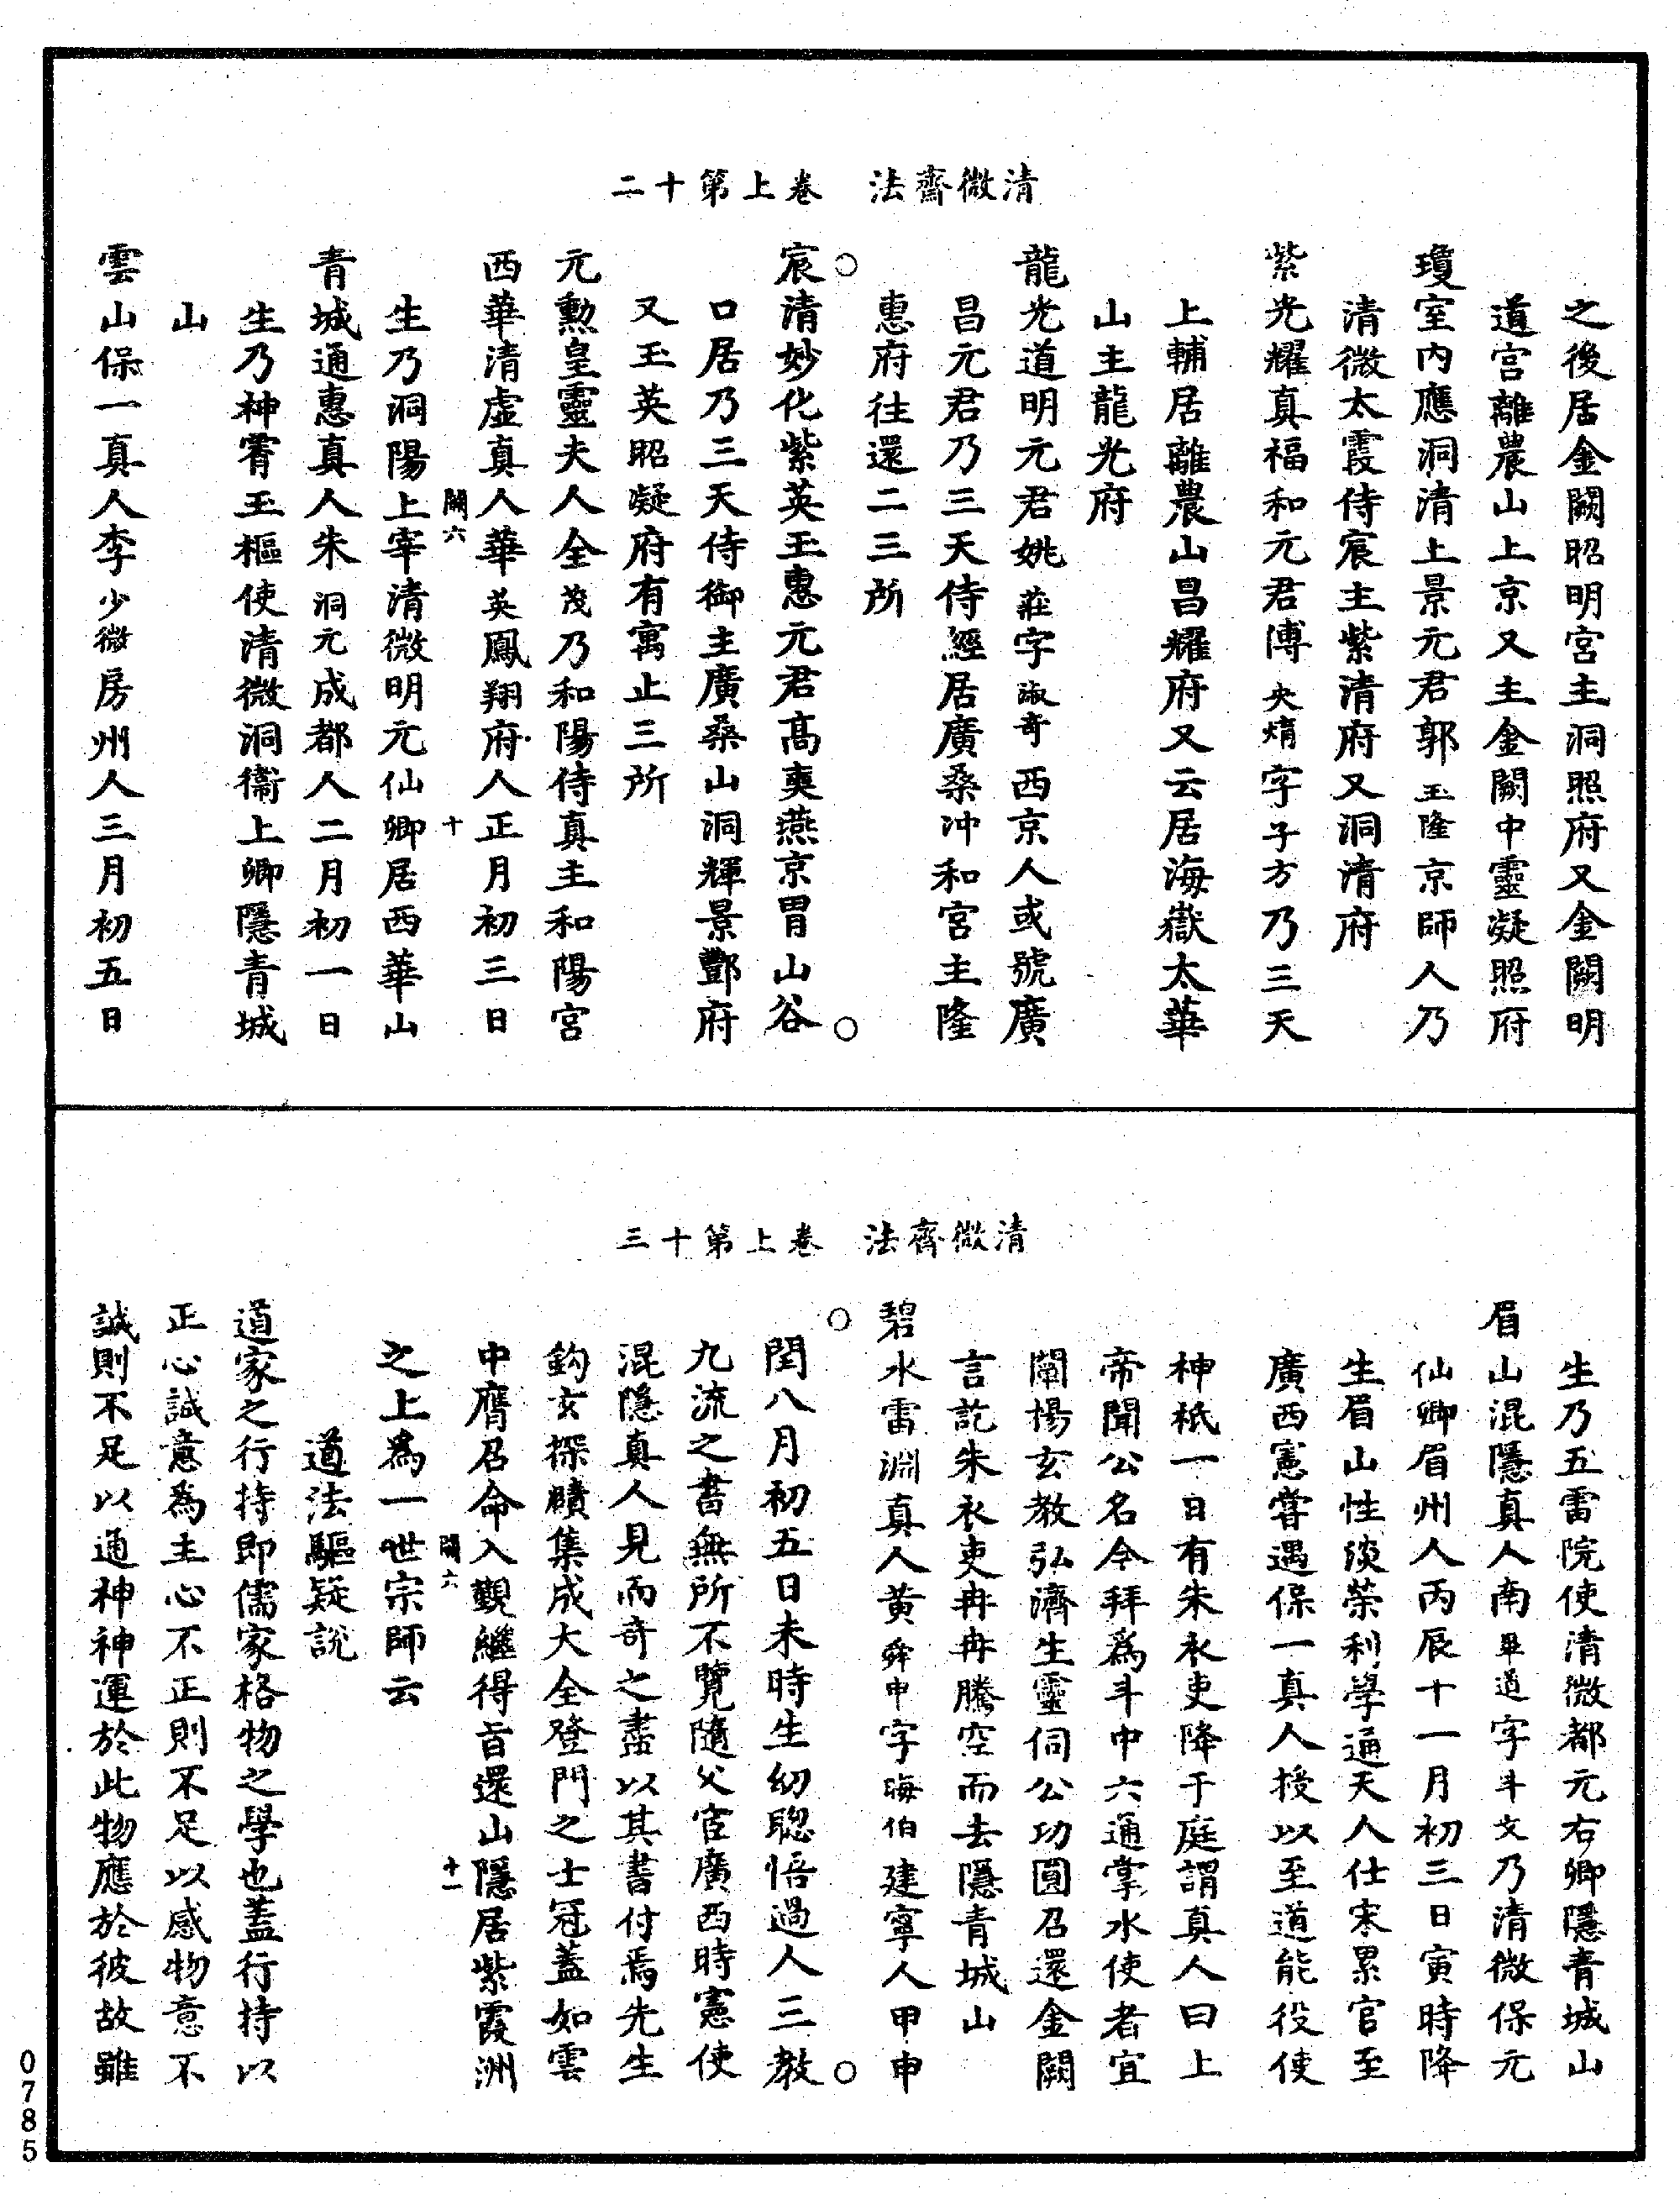 清微齋法　卷上第十二
之後居金闕昭明宮主洞照府又金闕明
道宮離農山上京又主金闕中靈凝照府
瓊室內應洞清上景元君郭玉隆京師人乃
清微太霞侍宸主紫清府又洞清府
紫光耀真福和元君傅央焴字子方乃三天
上輔居離農山昌耀府又云居海嶽太華
山主龍光府
龍光道明元君姚莊字淑奇西京人或號廣
昌元君乃三天侍經居廣桑冲和宮主隆
惠府往還二三所
宸清妙化紫英玉惠元君高奭燕京胃山谷
口居乃三天侍御主廣桑山洞輝景酆府
又玉英昭凝府有寓止三所
元勳皇靈夫人全茂乃和陽侍真主和陽宮
西華清虛真人華英鳳翔府人正月初三日
闕六　十
生乃洞陽上宰清微明元仙卿居西華山
青城通惠真人朱洞元成都人二月初一日
生乃神霄玉樞使清微洞衞上卿隱青城
山
雲山保一真人李少微房州人三月初五日
清微齋法　卷上第十三
生乃五雷院使清微都元右卿隱青城山
眉山混隱真人南畢道字斗文乃清微保元
仙卿眉州人丙辰十一月初三日寅時降
生眉山性淡榮利學通天人仕宋累官至
廣西憲嘗遇保一真人授以至道能役使
神祇一日有朱衣吏降于庭謂真人曰上
帝聞公名令拜爲斗中六通掌水使者宜
闡揚玄教弘濟生靈伺公功圓召還金闕
言訖朱衣吏冉冉騰空而去隱青城山
碧水雷淵真人黃舜申字晦伯建寧人甲申
閏八月初五日未時生幼聰悟過人三教
九流之書無所不覽隨父宦廣西時憲使
混隱真人見而奇之盡以其書付焉先生
鈎玄探賾集成大全登門之士冠蓋如雲
中膺召命入覲繼得旨還山隱居紫霞洲
闕六　十一
之上爲一世宗師云
道法驅疑說
道家之行持即儒家格物之學也蓋行持以
正心誠意爲主心不正則不足以感物意不
誠則不足以通神神運於此物應於彼故雖
0785